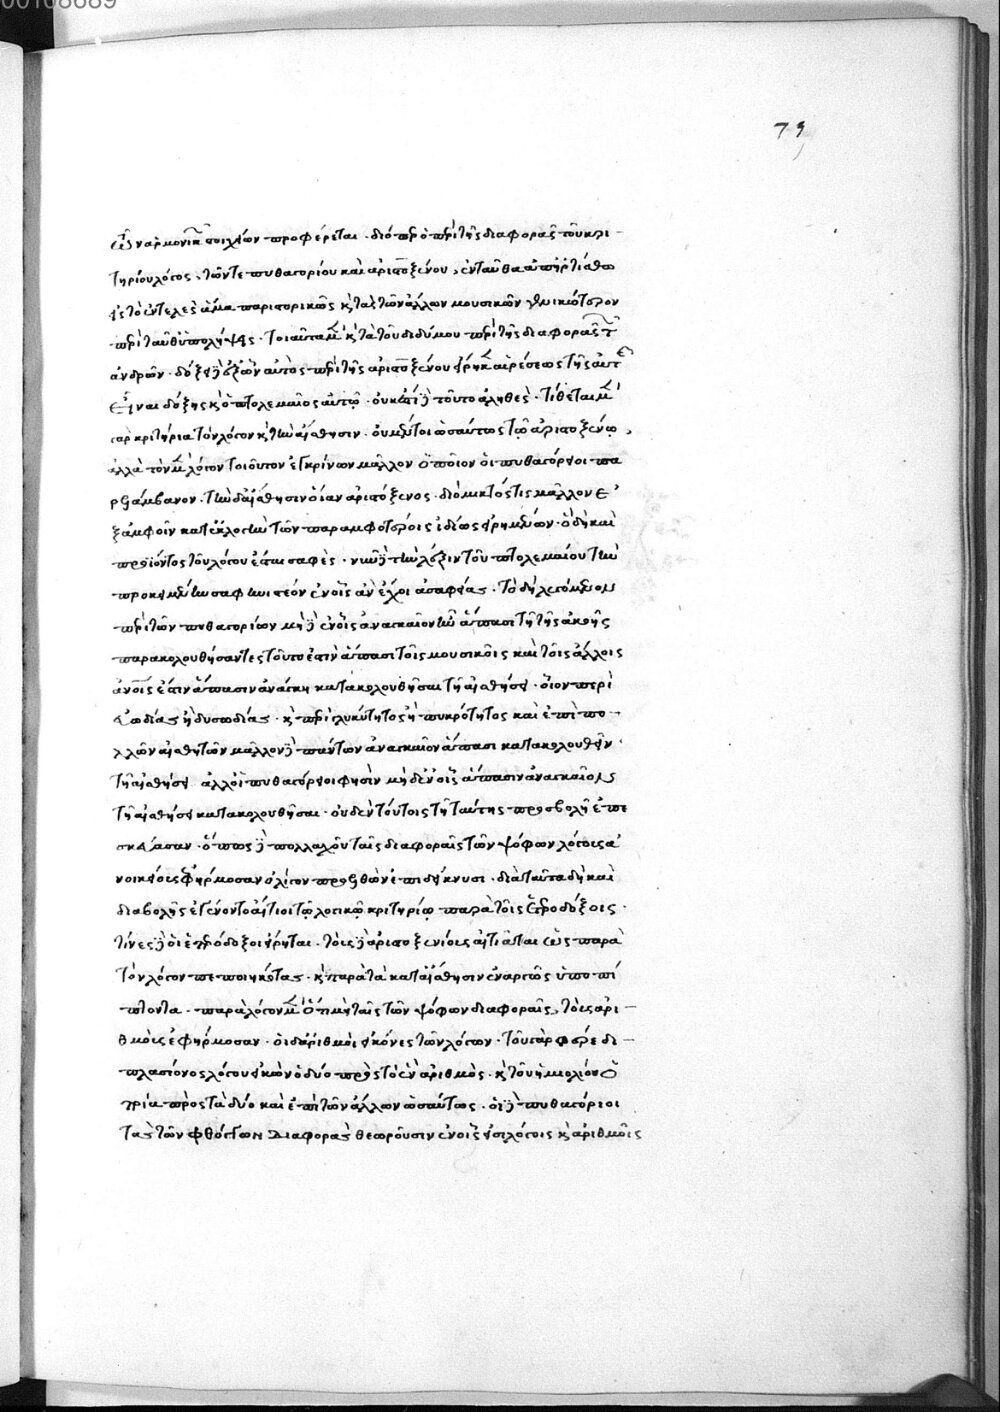 00108689
79
ἐναρμονικ στοιχείων προφέρεται · διόπερ ὁ περὶ τῆς διαφορᾶς τοῦ κρι-
τηρίου λόγος, τῶν τε πυθαγορίου καὶ ἀριστοξένου, ἐνταῦθα ἀπηρτίσθω
εἰς τὸ ἐντελὲς ἅμα παριστορικῶς κ τὰς τῶν ἄλλων μουσικῶν
περὶ ταυθ ὑπολήψεις · τοιαῦτα μ κ τὰ τοῦ διδύμου περὶ τῆς διαφορᾶς τ
ἀνδρῶν · δόξει δ αὐτὸς περὶ τῆς ἀριστοξένου αἱρέσεως τῆς αὐτ
εἶναι δόξης κ ὁ πτολεμαῖος αὐτῷ · οὐκ ἔτι δ τοῦτο ἀληθὲς · τίθεται μ
γὰρ κριτήρια τὸν λόγον κ τὴν αἴσθησιν · οὐ μέντοι ὡσαύτως τῷ ἀριστοξένῳ,
ἀλλὰ τὸν μ λόγον τοιοῦτον ἐγκρίνων μᾶλλον ὁποῖον οἱ πυθαγόρειοι πα
ρελάμβανον · τὴν δ αἴσθησιν οἵαν ἀριστόξενος · διὸ μικτός τις μᾶλλον ἐ
ξ ἀμφοῖν κατ ἐκλογὴν τῶν παρ ἀμφοτέροις ἰδίως εἰρημένων · ὃ δὴ καὶ
προϊόντος τοῦ λόγου ἔσται σαφὲς · νῦν δ τὴν λέξιν τοῦ πτολεμαίου τὴν
προκειμένην σαφηνιστέον ἐν οἷς ἂν ἔχοι ἀσαφείας · τὸ δὴ λεγόμενον
περὶ τῶν πυθαγορίων μὴ δ ἐν οἷς ἀναγκαῖον ἦν ἅπασι τῇ τῆς ἀκοῆς
παρακολουθήσαντες τοῦτο ἐστὶν ἅπασι τοῖς μουσικοῖς καὶ τοῖς ἄλλοις
ἀνοῖς ἐστιν ἅπασιν ἀνάγκη κατακολουθῆσαι τῇ αἰσθήσει · οἷον περὶ
εὐωδίας ἢ δυσωδίας · κ περὶ γλυκύτητος ἢ πικρότητος καὶ ἐπὶ πο-
λλῶν αἰσθητῶν μᾶλλον δ πάντων ἀναγκαῖον ἅπασι κατακολουθεῖν ·
τῇ αἰσθήσει ἀλλ οἱ πυθαγόρειοι φησὶν μὴδ ἐν οἷς ἅπασιν ἀναγκαῖον
τῇ αἰσθήσει κατακολουθῆσαι · οὐδ ἐν τούτοις τῇ ταύτης προσβολῇ ἐπε
σκεύασαν · ὅπως δ πολλαχοῦ ταῖς διαφοραῖς τῶν ψόφων λόγοις ἀ
νοικείοις ἐφήρμοσαν ὀλίγον προελθὼν ἐπιδείκνυσι · διὰ ταῦτα δὴ καὶ
διαβολῆς ἐγένοντο αἴτιοι τῷ λογικῷ κριτηρίῳ παρὰ τοῖς ἑτεροδόξοις ·
τίνες δ οἱ ἑτερόδοξοι εἴρηται · τοὺς δ ἀριστοξενίους αἰτιᾶται ὡς παρὰ
τὸν λόγον πεποιηκότας · κ παρὰ τὰ κατ αἴσθησιν ἐναργῶς ὑποπί
πτοντα · παρὰ λόγον μ ὅτι μὴ ταῖς τῶν ψόφων διαφοραῖς, τοὺς ἀρι-
θμοὺς ἐφήρμοσαν · οἱ δ ἀριθμοὶ εἰκόνες τῶν λόγων · τοῦ γὰρ φέρε δι-
πλασίονος λόγου εἰκὼν ὁ δύο πρὸς τὸ ἓν ἀριθμὸς · κ τοῦ ἡμιολίου ὁ
τρία πρὸς τὰ δύο καὶ ἐπὶ τῶν ἄλλων ὡσαύτως · οἱ δ πυθαγόριοι
τὰς τῶν φθόγγων διαφορὰς θεωροῦσιν ἐν οἷς εἰσι λόγοις κ ἀριθμοῖς